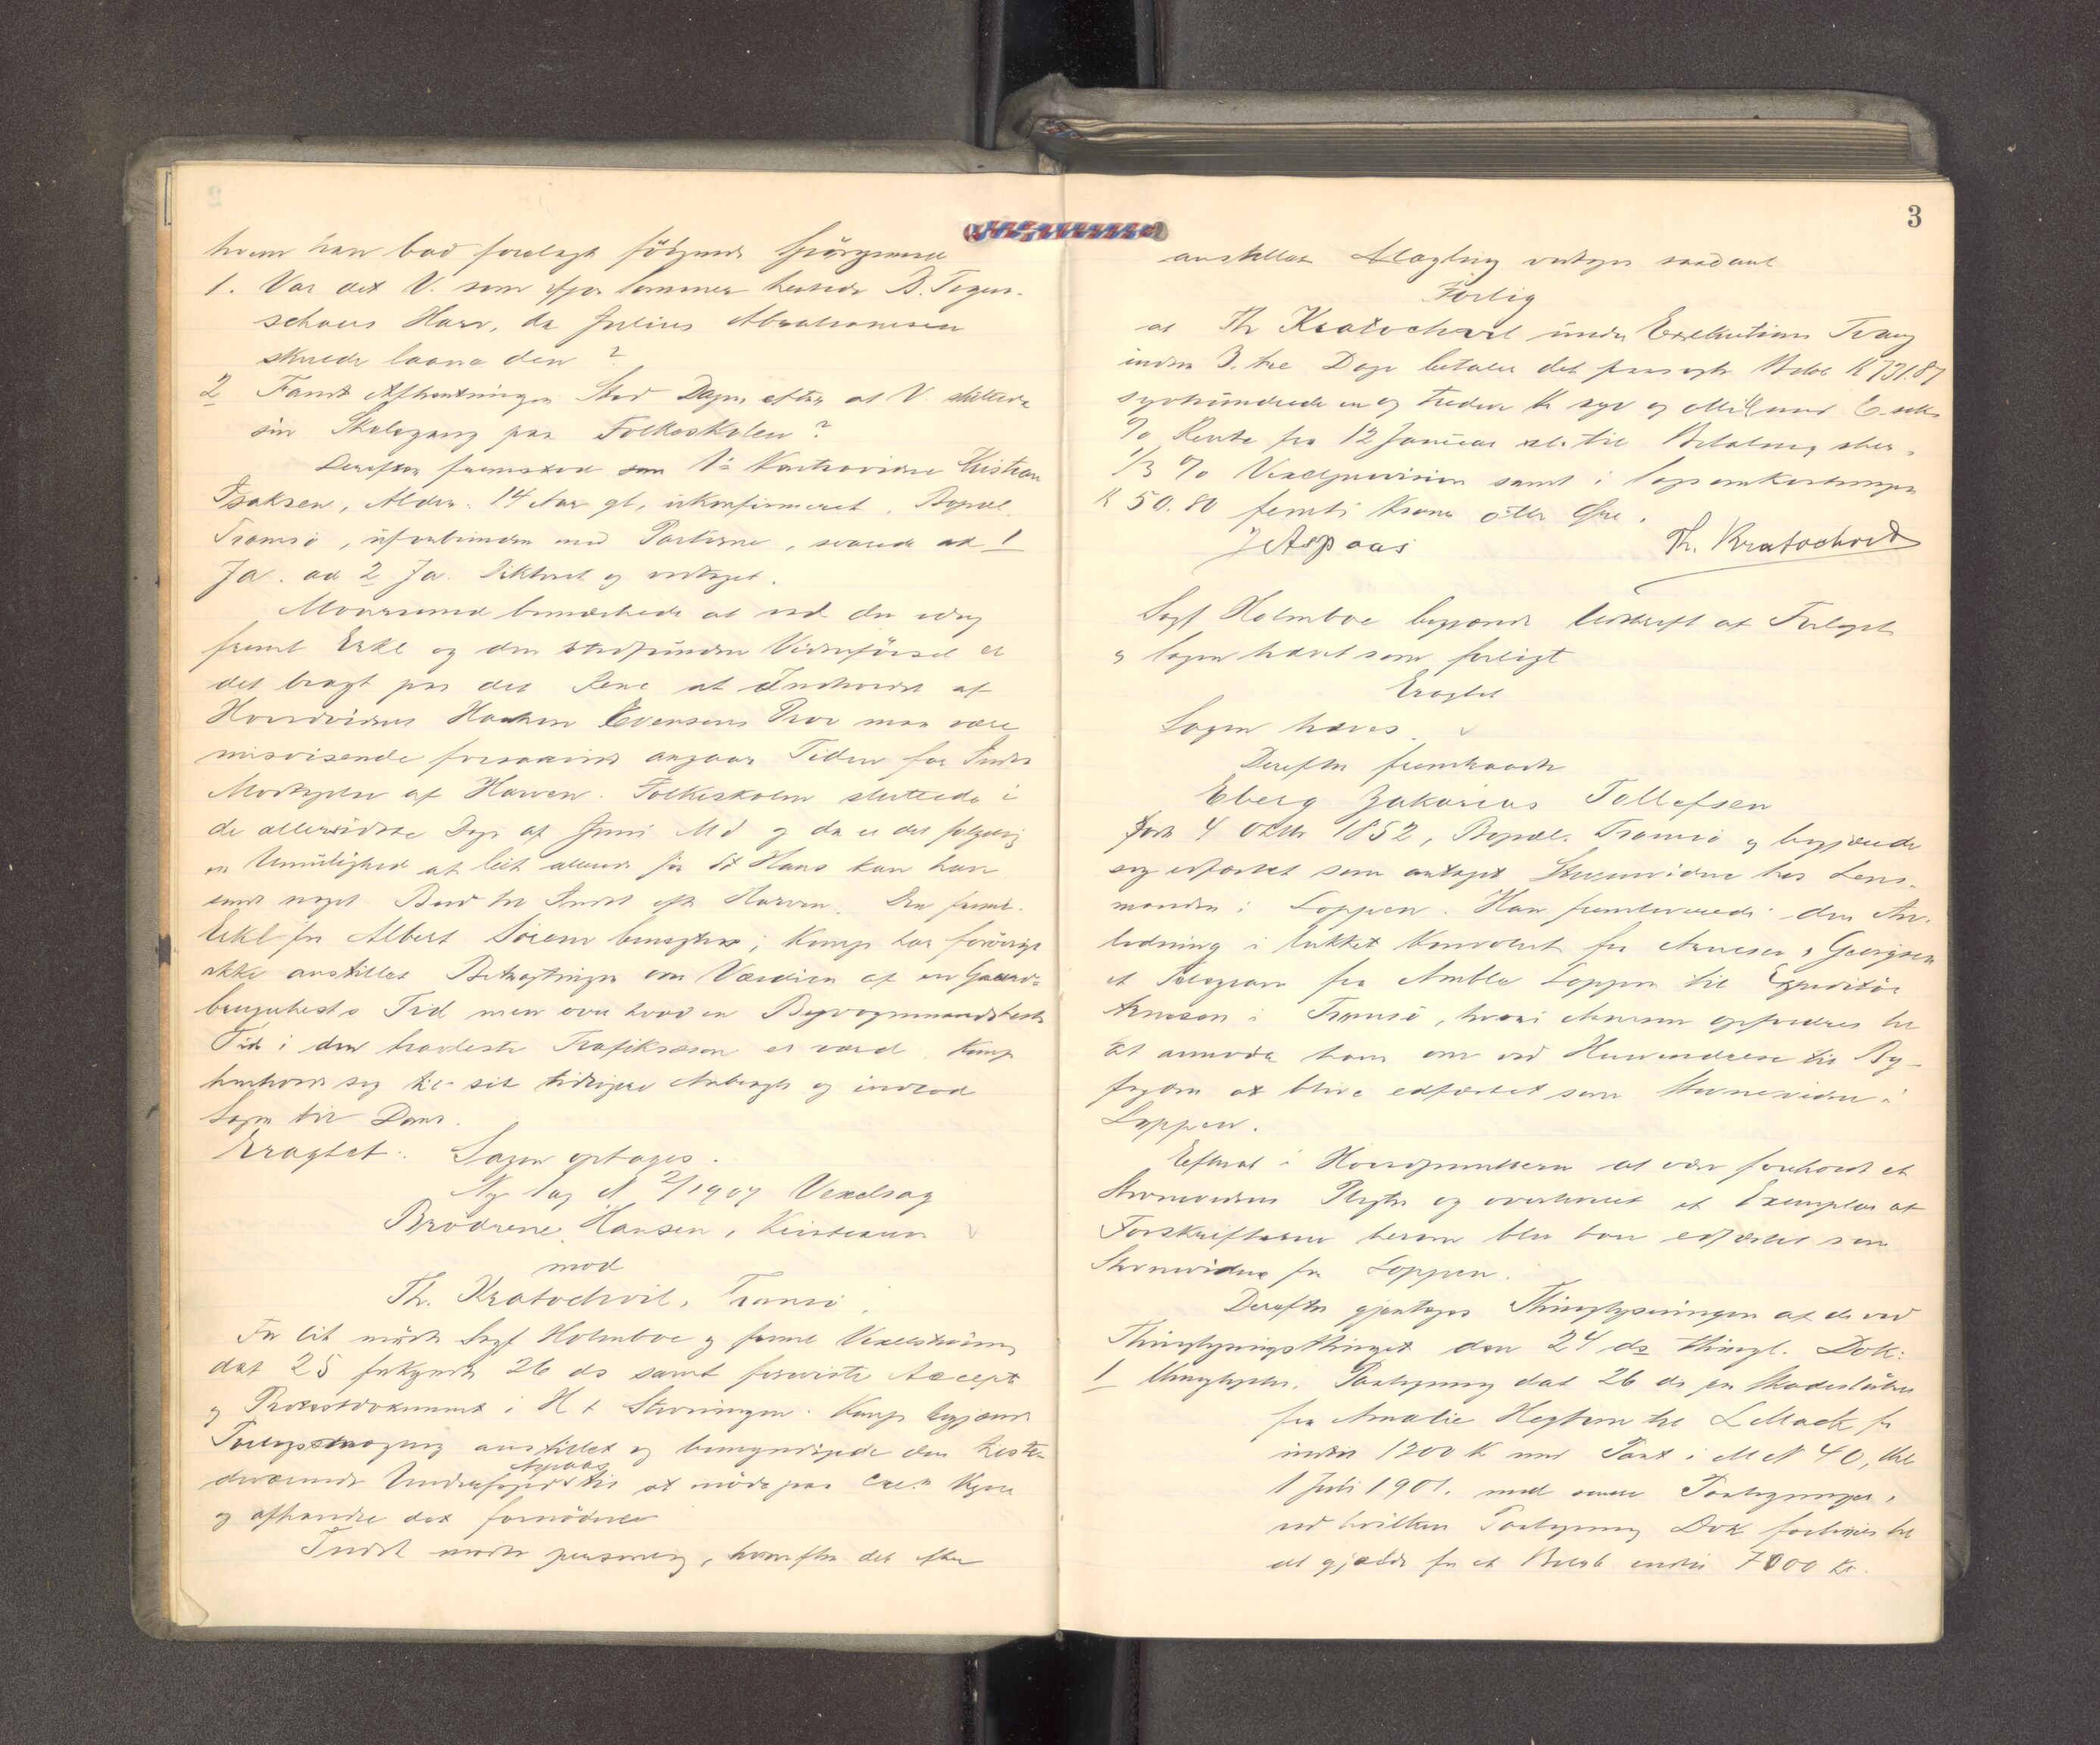 hvem han bad forelagt følgende Spørgsmaal
1. Var det V. som ifjor Sommer hentede B. Tegen-
schous Harv, da Julius Abrahamsen
skulde laane den?
2 Fandt Afhentningen Sted Dagen efter at V. sluttede
sin Skolegang paa Folkeskolen?
Derefter fremstod som 1ste Kontravidne Kristian
Isaksen, Alder: 14 Aar gl, ukonfirmeret, Bopæl
Tromsø, uforbunden med Parterne, svarede ad 1
Ja. ad 2 Ja. Dikteret og vedtaget.
bemærkede at ved den idag
freml Erkl og den stedfundne Vidneførsel er
det bragt paa det Rene at Indholdet af
Hovedvidnet Haakon Evensens Prov maa være
misvisende forsaavidt angaar Tiden for Indst
Modtagelse af Harven. Folkeskolen sluttede i
de allersidste Dage af Juni Md og da er det følgelig
en Umulighed at Cit allerede før St Hans kan have
sendt noget Bud til Indst efter Harven. Den freml.
Erkl fra Albert Sørensen benægtes; Komp har forøvrigt
ikke anstillet Betragtninger om Værdien af en Gaard-
brugerhests Tid men over hvad en Byvognmandshests
Tid i den travleste Trafiksæson er værd. Komp
henholdt sig til sit tidligere Anbragte og indlod
Sagen til Doms.
Eragtet: Sagen optages.
Ny Sag N 2/1907 Vexelsag
Brødrene Hansen, Kristiania
mod
Th. Kratochvil, Tromsø.
For Cit mødte Sagf Holmboe og freml Vexelstævning
dat 25 forkyndt 26 ds samt foreviste Accept
og Protestdokument i H t Stevningen. Komp begjærede
Forligsmægling anstillet og bemyndigede den tilste-
deværende Underfoged Aspaas til at møde paa Cit.s Vegne
og afhandle det fornødne
Indst mødte personlig, hvorefter det efter
3
anstillet Mægling vedtoges saadant
Forlig
at Th Kratochvil under Exekutions Tvang
inden 3. tre Dage betaler det paasøgte Beløb K 731.87
syvhundrede en og tredive Kr syv og otti Øre med 6. seks
% Rente fra 12 Januar d.A. til Betaling sker,
1/3 % Vexelprovision samt i Sagsomkostninger
K 50.80 femti Kroner otti Øre.
J Aspaas Th. Kratochvil
Sagf Holmboe begjærede Udskrift af Forliget
og Sagen hævet som forligt
Eragtet
Sagen hæves.
Derefter fremstod
Eberg Zakarias Tollefsen
født 4 Oktbr 1852, Bopæl. Tromsø og begjærede
sig edfæstet som antaget Stevnevidne hos Lens-
manden i Loppen. Han fremleverede i den An-
ledning i lukket Konvolut fra Arnesen & Georgsen
et Telegram fra Ambla Loppen til Expeditør
Arnesen i Tromsø, hvori Arnesen opfordres til
at anmode ham om ved Henvendelse til By-
fogden at blive edfæstet som Stevnevidne i
Loppen.
Efterat i Hovedpunkterne at være foreholdt et
Stevnevidnes Pligter og overleveret et Exemplar af
Forskrifterne herom blev han edfæstet som
Stevnevidne for Loppen.
Derefter gjentages Thinglysningen af de ved
Thinglysningsthinget den 24 ds thingl. Dok:
1 thinglystes. Paategning dat 26 ds paa Skadesløsbr
fra Amalie Hegtun til L Mack for
indtil 1200 K med Pant i M N 40, thl
1 Juli 1901. med senere Paategninger,
ved hvilken Paategning Dok forhøies til
at gjælde for et Beløb indtil 7000 Kr.